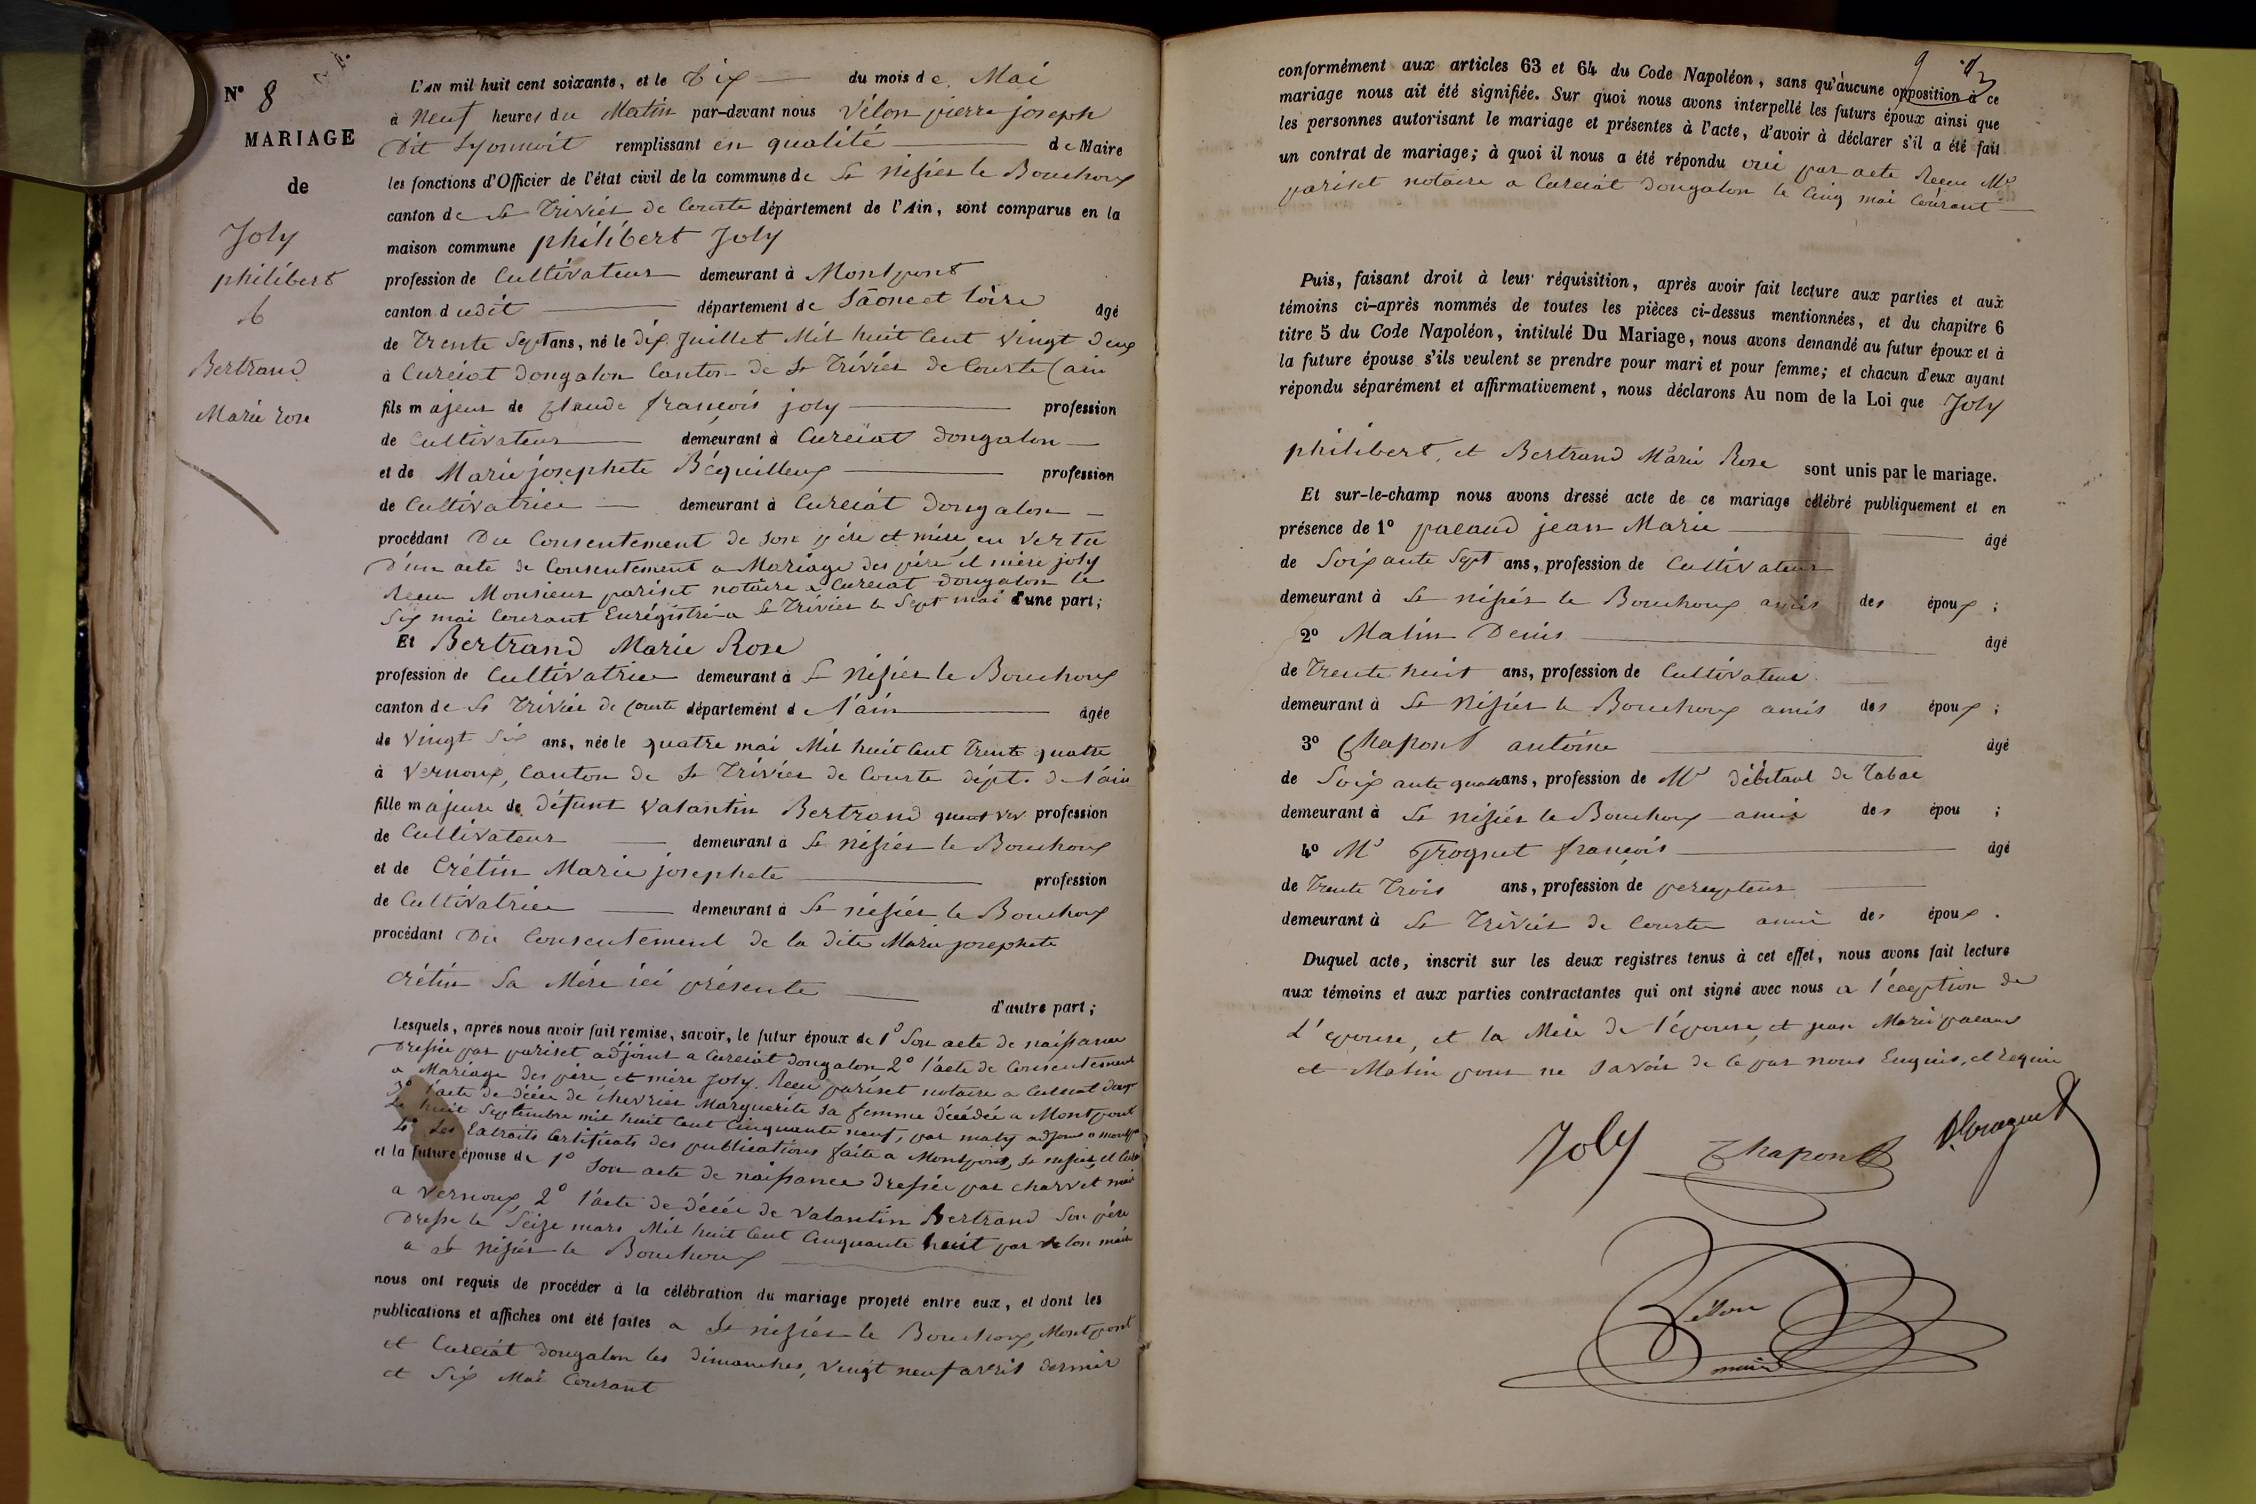 N° 8
MARIAGE
de
Joly
philibert
&
Bertrand
Marie rose
L'AN mil huit cent soixante, et le Dix du mois de Mai
à Neuf heures du Matin par-devant nous Vélon pierre joseph
Dit Lyonnoit remplissant en qualité de Maire
les fonctions d'Officier de l'état civil de la commune de St nisier le Bouchoux
canton de St Trivier de Courte département de l'Ain, sont comparus en la
maison commune philibert Joly
profession de Cultivateur demeurant à Montpont
canton dudit département de Sâone et loire âgé
de Trente Sept ans, né le Dix Juillet Mil huit Cent Vingt Deux
à Curciat dongalon Canton de St Trivier de Courte (ain
fils majeur de Claude françois joly profession
de Cultivateur demeurant à Curciat dongalon
et de Marie josephete Béquilleux profession
de Cultivatrice demeurant à Curciat Dongalon
procédant Du Consentement de son père et mère en vertu
D'un acte de Consentement a Mariage des père et mère joly
Recu Monsieur pariset notaire a Curciat dongalon le
Six mai Courant Enrégistré a St Trivier le Sept mai d'une part;
Et Bertrand Marie Rose
profession de Cultivatrice demeurant à St Nisier le Bouchoux
canton de St Trivier de Courte département de l'ain âgée
de Vingt Six ans, née le quatre mai Mil huit Cent Trente quatre
à Vernoux, Canton de St Trivier de Courte dépt. de l'ain
fille majeure de défunt Valantin Bertrand profession
de Cultivateur demeurant à St nisier le Bouchoux
et de Crétin Marie josephete profession
de Cultivatrice demeurant à St nisier le Bouchoux
procédant Du Consentement de la dite Marie josephete
crétin Sa Mère ici présente
d'autre part;
Lesquels, après nous avoir fait remise, savoir, le futur époux de 1° Son acte de naissance
Dressé par pariset adjoint a Curciat dongalon 2° l'acte de Consentement
a Mariage des père et mère Joly Recu pariset notaire a Curciat
3° l'acte de décée de chevrier Marguerite sa femme décédée a Montpont
Le huit Septembre mil huit Cent Cinquante neuf, par maty adjoint a
4° Les Extraits Certificats des publications faite a Montpont, St nisier, et
et la future épouse de 1° Son acte de naissance Dressée par charvet
a Vernoux, 2° l'acte de décée de Valantin Bertrand Son père
Dresse le Seize mars Mil huit Cent Cinquante huit par Velon maire
a St Nisier le Bouchoux
nous ont requis de procéder à la célébration du mariage projeté entre eux, et dont les
publications et affiches ont été faites a St nisier le Bouchoux, Montpont
et Curciat dongalon les dimanches, Vingt neuf avril dernier
et Six Mai Courant
9
conformément aux articles 63 et 64 du Code Napoléon, sans qu'aucune opposition à ce
mariage nous ait été signifiée. Sur quoi nous avons interpellé les futurs époux ainsi que
les personnes autorisant le mariage et présentes à l'acte, d'avoir à déclarer s'il a été fait
un contrat de mariage; à quoi il nous a été répondu oui par acte Recu Me
pariset notaire a Curciat Dongalon le Cinq mai Courant
Puis, faisant droit à leur réquisition, après avoir fait lecture aux parties et aux
témoins ci-après nommés de toutes les pièces ci-dessus mentionnées, et du chapitre 6
titre 5 du Code Napoléon, intitulé Du Mariage, nous avons demandé au futur époux et à
la future épouse s'ils veulent se prendre pour mari et pour femme; et chacun d'eux ayant
répondu séparément et affirmativement, nous déclarons Au nom de la Loi que Joly
philibert, et Bertrand Marie Rose sont unis par le mariage.
Et sur-le-champ nous avons dressé acte de ce mariage célébré publiquement et en
présence de 1° pacaud jean Marie âgé
de Soixante Sept ans, profession de Cultivateur
demeurant à St nisier le Bouchoux amis des époux;
2° Matin Denis âgé
de Trente huit ans, profession de Cultivateur
demeurant à St Nisier le Bouchoux amis des époux;
3° Chapont antoine âgé
de Soixante quatre ans, profession de Md débitant de Tabac
demeurant à St nisier le Bouchoux amis des épou ;
4° Mr françois âgé
de Trente Trois ans, profession de percepteur
demeurant à St Trivier de Courte amis des époux.
Duquel acte, inscrit sur les deux registres tenus à cet effet, nous avons fait lecture
aux témoins et aux parties contractantes qui ont signé avec nous a l'éxeption de
L'épouse, et la Mère de l'épouse, et jean Marie pacaud
et Matin pour ne Savoir de ce par nous Enquis, et requis
Joly Chapont
Vélon
maire